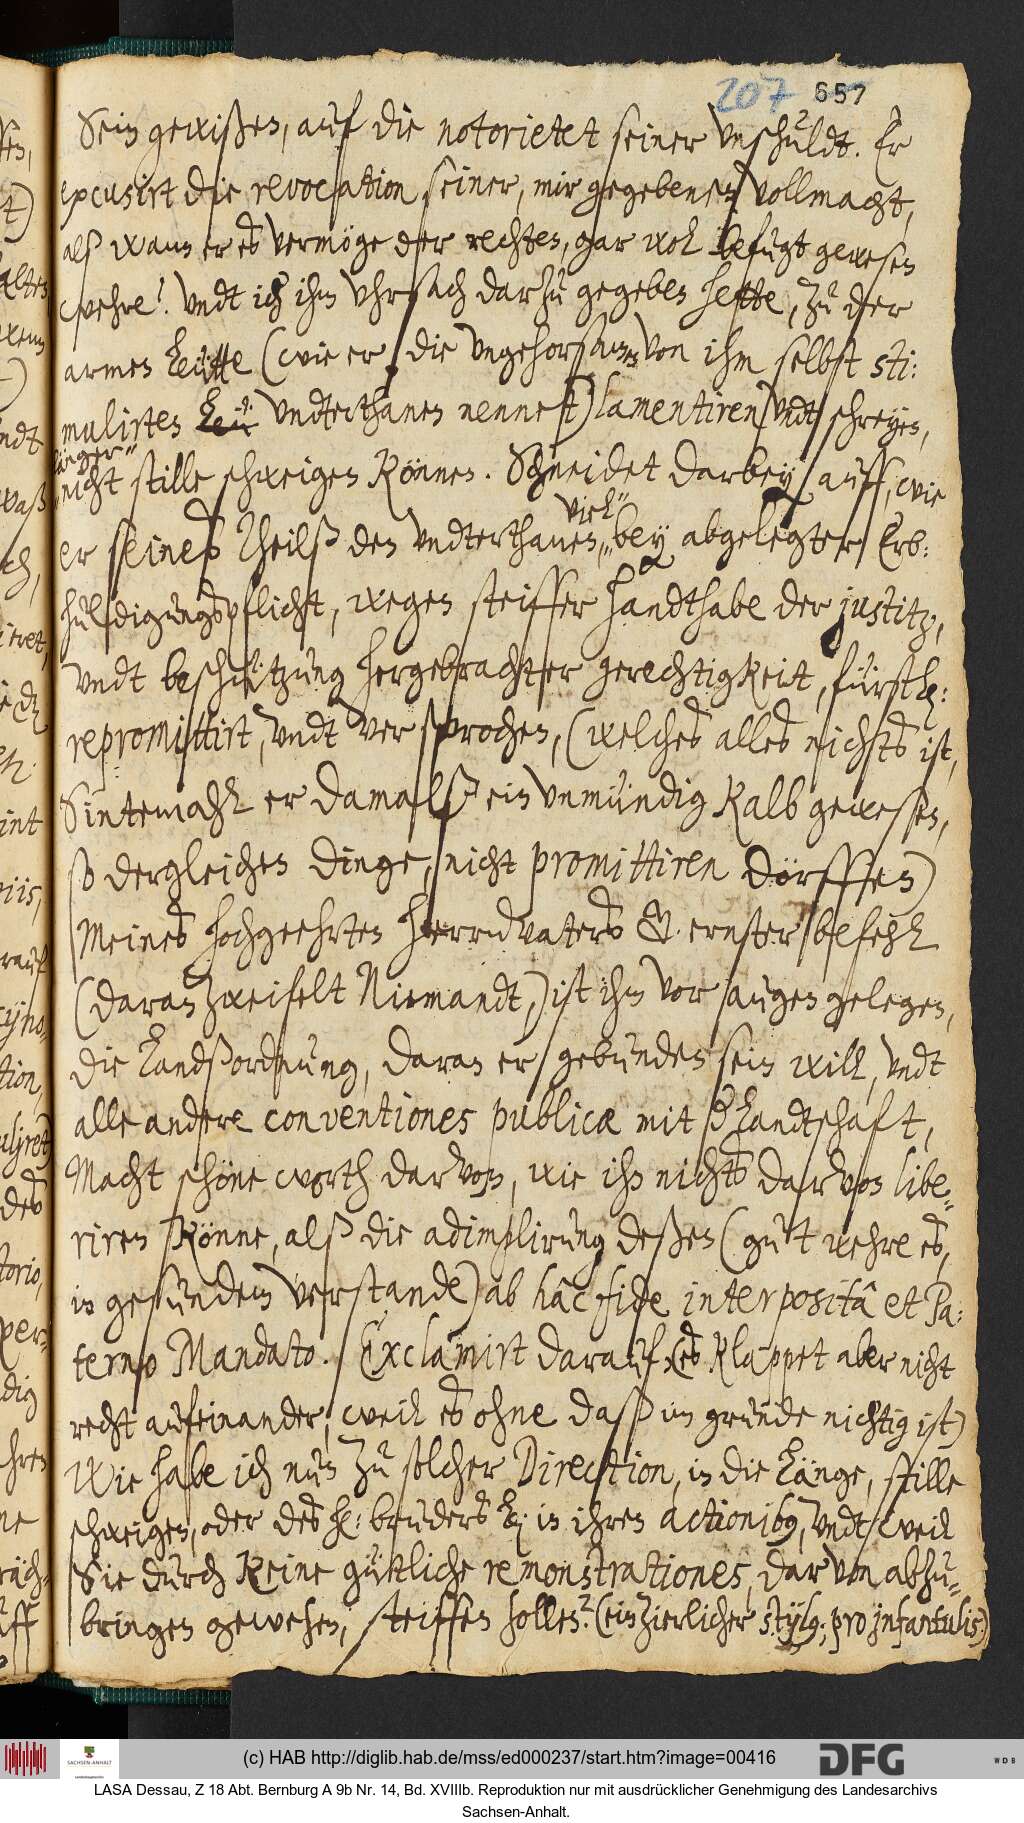 207 657
Sein gewißen, auf die notorietet seiner Vnschuldt. Er
excusirt die revocation seiner, mir gegebenen vollmacht,
alß wann er es vermöge der rechten, gar wol befugt gewesen
wehre! Undt ich ihm Uhrsach darzu gegeben hette, zu der
armen Leütte (wie er, die Ungehorsamen von ihm selbst sti:
mulirten Undterthanen nennet) lamentiren Undt schreyen,
länger
nicht stille schweigen können. Schneidet darbey auff, wie
viel
er seines Theilß den Undterthanen, bey abgelegter Erb:
huldigungspflicht, wegen steiffer handthabe der justitz,
Undt beschützung hergebrachter gerechtigkeit, fürstl:
repromittirt, Undt versprochen, (welches alles nichts ist,
Sintemahl er damalß ein Unmündig Kalb gewesen,
so dergleichen dinge, nicht promittiren dörffen)
Meines hochgeehrten herrn Vaters S. ernster befehl
(daran zweifelt Niemandt,) ist ihm vor augen gelegen,
die Landßordnung, daran er gebunden sein will, Undt
alle andere conventiones publicæ mit der Landtschaft,
Macht schöne worth darvon, wie ihn nichts darvon libe„
riren könne, alß die adimplirung deßen (gut wehre es,
in gesundem Verstande) ab hâc fide interpositâ et Pa:
terno Mandato. Exclamirt darauf, (es klappet aber nicht
recht aufeinander, weil es ohne daß im grunde nichtig ist)
Wie habe ich nun zu solcher Direction, in die Länge, stille
schweigen, oder des hl: bruders L: in ihren actionib9, Undt weil
Sie durch keine gütliche remonstrationes, dar Von abzu„
bringen gewesen, steiffen sollen? (ein zierlicher stylg, pro infantulis.)
(c) HAB http://diglib.hab.de/mss/ed000237/start.htm?image=00416
SACHSEN-ANHALT
DFG
WDB
LASA Dessau, Z 18 Abt. Bernburg A 9b Nr. 14, Bd. XVIIIb. Reproduktion nur mit ausdrücklicher Genehmigung des Landesarchivs
Sachsen-Anhalt.